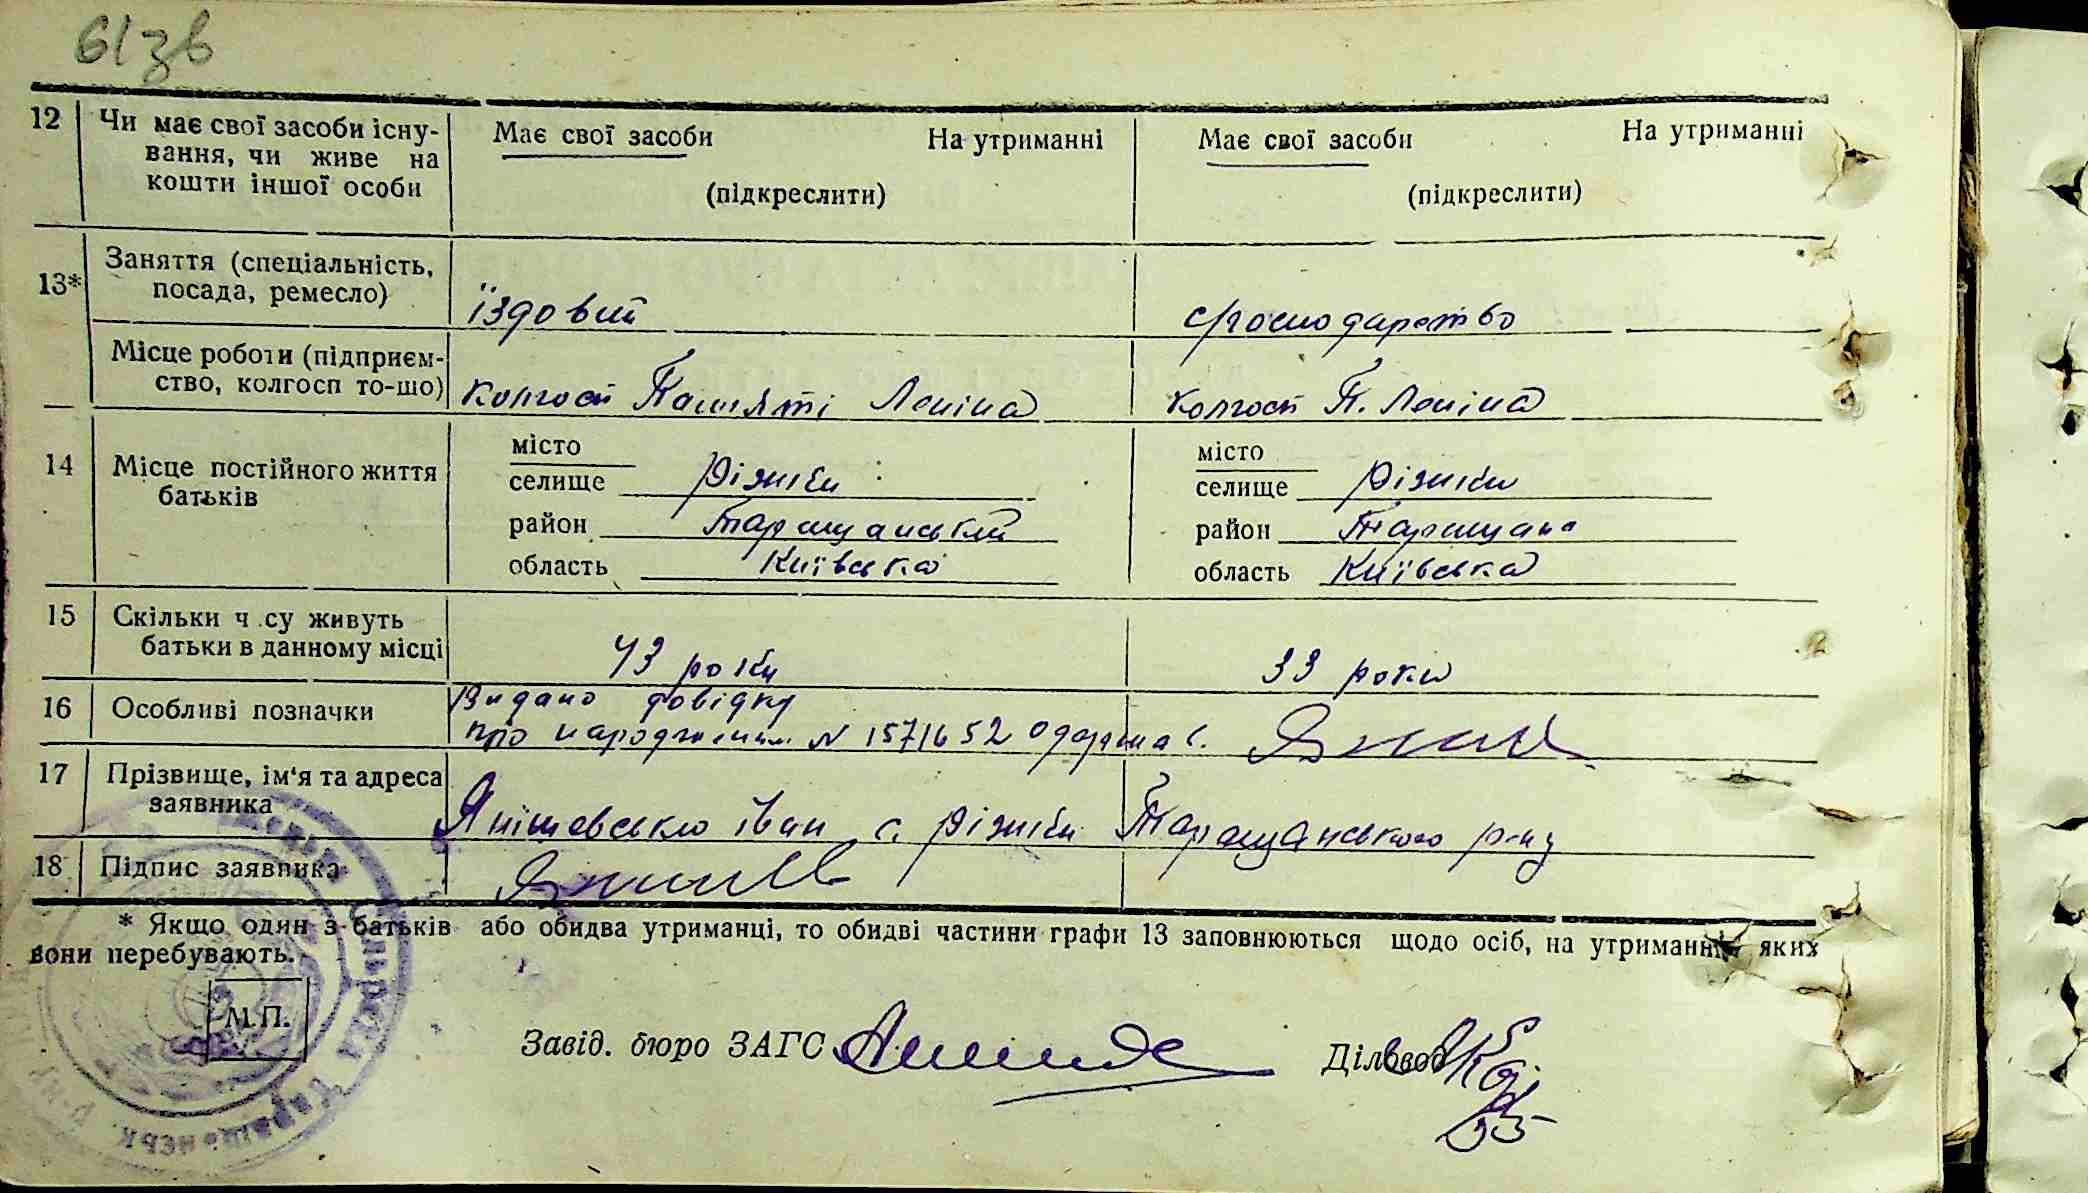 61зв
12 Чи має свої засоби існу- Має свої засоби На утриманні Має свої засоби На утриманні
вання, чи живе на
кошти іншої особи (підкреслити) (підкреслити)
13* Заняття (спеціальність,
посада, ремесло) їздовий с/господарство
Місце роботи (підприєм-
ство, колгосп то-що) колгосп Пам'яті Леніна колгосп П. Леніна
14 Місце постійного життя
батьків
місто місто
селище Ріжки селище Ріжки
район Таращанський район Таращан
область Київська область Київська
15 Скільки ч су живуть
батьки в данному місці 43 роки 33 роки
16 Особливі позначки Видано довідку
про народження N 1571652 одержав.
17 Прізвище, ім'я та адреса
заявника Янішевсько Іван с. Ріжки Таращанського р-ну
18 Підпис заявника
* Якщо один з батьків або обидва утриманці, то обидві частини графи 13 заповнюються щодо осіб, на утриманні яких
вони перебувають.
М.П.
Завід. бюро ЗАГС Діловод